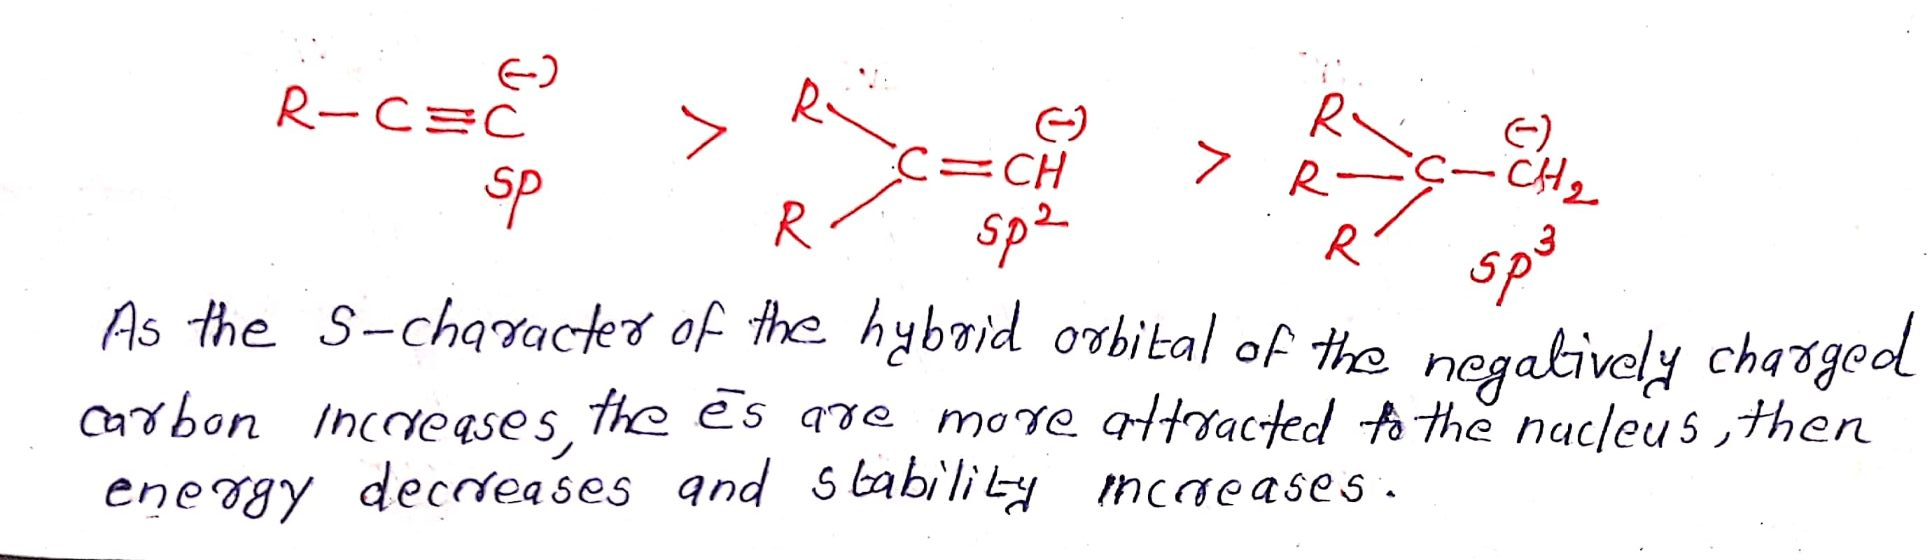 R-C≡C(-) > R R C=CH(-) > R R R C-CH2(-)
sp sp² sp³
As the S-character of the hybrid orbital of the negatively charged
carbon increases, the ēs are more attracted to the nucleus, then
energy decreases and stability increases.